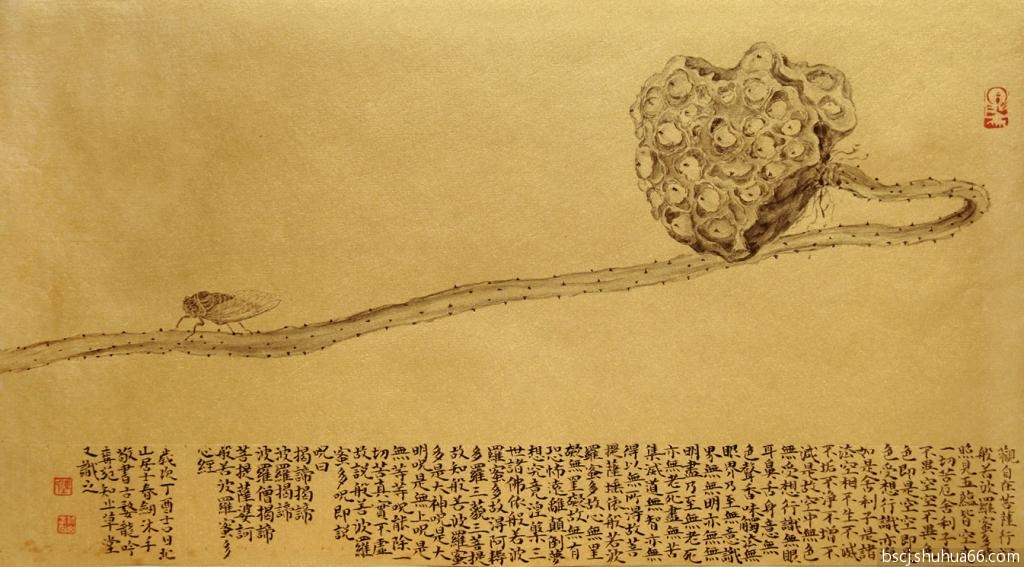 觀自在菩薩行深
般若波羅蜜多時
照見五蘊皆空度
一切苦厄舍利子色
不異空空不異色
色即是空空即是
色受想行識亦復
如是舍利子是諸
法空相不生不滅
不垢不淨不增不
減是故空中無色
無受想行識無眼
耳鼻舌身意無
色聲香味觸法無
眼界乃至無意識
界無無明亦無無
明盡乃至無老死
亦無老死盡無苦
集滅道無智亦無
得以無所得故菩
提薩埵依般若波
羅蜜多故心無罣
礙無罣礙故無有
恐怖遠離顛倒夢
想究竟涅槃三
世諸佛依般若波
羅蜜多故得阿耨
多羅三藐三菩提
故知般若波羅蜜
多是大神咒是大
明咒是無上咒是
無等等咒能除一
切苦真實不虛
故說般若波羅
蜜多咒即說
咒曰
揭諦揭諦
波羅揭諦
波羅僧揭諦
菩提薩婆訶
般若波羅蜜多
心經
歲次丁酉子日北
山居子春沐手
敬書古龍吟
知止草堂
又識之
bscj.shuhua66.com